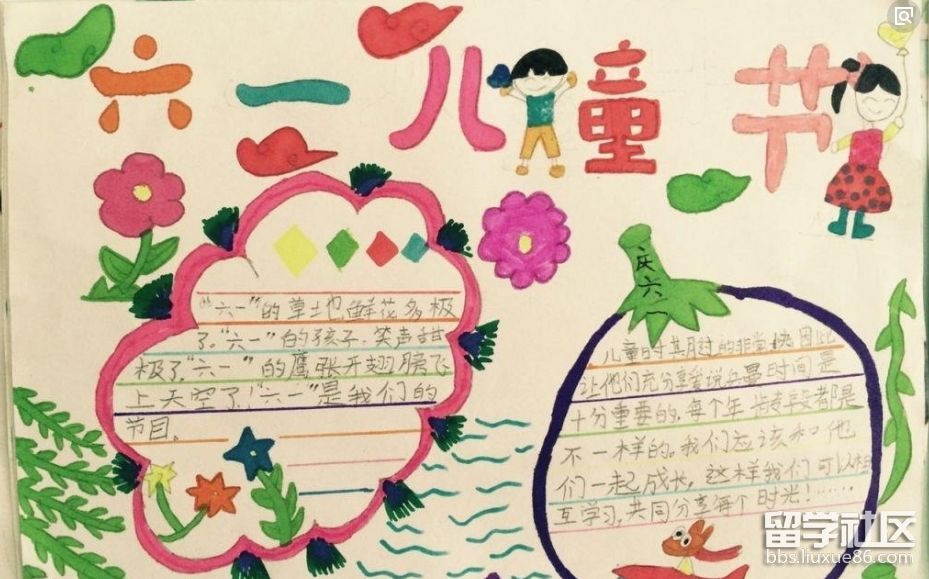 六一儿童节
"六一"的草地鲜花多极
了。"六一"的孩子笑声甜
极了,"六一"的鹰张开翅膀飞
上天空了!"六一"是我们的
节目。
庆六一
儿童时其月过的非常快,因此
让他们充分享爱说 时间是
十分重要的,每个年 段都是
不一样的。我们应该和他
们一起成长,这样我们可以相
互学习,共同分享每个时光!……
留学社区
bbs.liuxue86.com